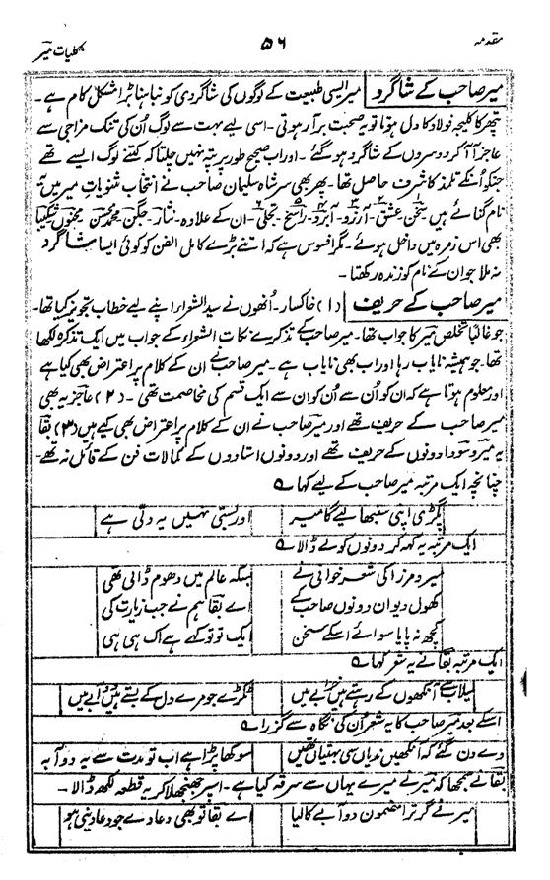 مقدمہ ۵۶ کلیات میر
میر صاحب کے شاگرد میر ایسی طبیعت کے لوگوں کی شاگردی کو نباہنا بڑا مشکل کام ہے۔
پتھر کا کلیجہ فولاد کا دل ہو تا تو یہ صحبت برآر ہوتی۔ اسی لیے بہت سے لوگ اُن کی تنک مزاجی سے
عاجز آ آ کر دوسروں کے شاگرد ہو گئے۔ اور اب صحیح طور پر پتہ نہیں چلتا کہ کتنے لوگ ایسے تھے
جنکو اُنکے تلمذ کا شرف حاصل تھا۔ پھر بھی سر شاہ سلیمان صاحب نے انتخاب مثنویات میر میں یہ
نام گنائے ہیں سخن۔ عشق۔ آرزو۔ آبرو۔ راسخ۔ تجلی۔ ان کے علاوہ۔ نثار۔ جگن۔ محمد محسن۔ مجنوں۔ شکیبا
بھی اس زمرہ میں داخل ہوئے۔ مگر افسوس ہے کہ اتنے بڑے کامل الفن کو کوئی ایسا شاگرد
نہ ملا جو ان کے نام کو زندہ رکھتا۔
میر صاحب کے حریف (۱) خاکسار۔ اُنھوں نے سید الشعراء اپنے لیے خطاب تجویز کیا تھا۔
جو غالباً تخلص میر کا جواب تھا۔ میر صاحب کے تذکرے نکات الشعراء کے جواب میں ایک تذکرہ لکھا
تھا۔ جو ہمیشہ نایاب رہا اور اب بھی نایاب ہے۔ میر صاحب نے ان کے کلام پر اعتراض بھی کیا ہے
اور معلوم ہوتا ہے کہ ان کو اُن سے اُن کو ان سے ایک قسم کی مخاصمت تھی۔ (۲) عاجز یہ بھی
میر صاحب کے حریف تھے اور میر صاحب نے ان کے کلام پر اعتراض بھی کیے ہیں (۳) بقا
یہ میر و سودا دونوں کے حریف تھے اور دونوں استادوں کے کمالات فن کے قائل نہ تھے۔
چنانچہ ایک مرتبہ میر صاحب کے لیے کہا ؎
پگڑی اپنی سنبھالیے گا میر اور بستی نہیں یہ دلی ہے
ایک مرتبہ یہ کہہ کر دونوں کو لے ڈالا ؎
میر و مرزا کی شعر خوانی نے بسکہ عالم میں دھوم ڈالی تھی
کھول دیوان دونوں صاحب کے اے بقا ہم نے جب زیارت کی
کچھ نہ پایا سوائے اسکے سخن ایک تو تو کہے ہے اک ہی ہی
ایک مرتبہ بقا نے یہ شعر کہا ؎
سیلاب سے آنکھوں کے رہتے ہیں خرابے میں ٹکڑے جو مرے دل کے بستے ہیں دوآبے میں
اسکے بعد میر صاحب کا یہ شعر اُن کی نگاہ سے گزرا ؎
وے دن گئے کہ آنکھیں ندیاں سی بہتیاں تھیں سوکھا پڑا ہے اب تو مدت سے یہ دو آبہ
بقا نے سمجھا کہ میر نے میرے یہاں سے سرقہ کیا ہے۔ اسپر جھنجھلا کر یہ قطعہ لکھ ڈالا۔
میر نے گر ترا مضمون دو آبے کا لیا اے بقا تو بھی دعا دے جو دعا دینی ہو